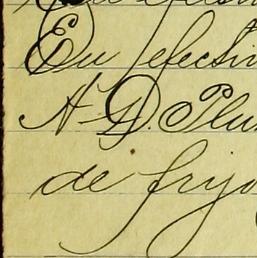 En efectiv
A. D. Plu
de frijo